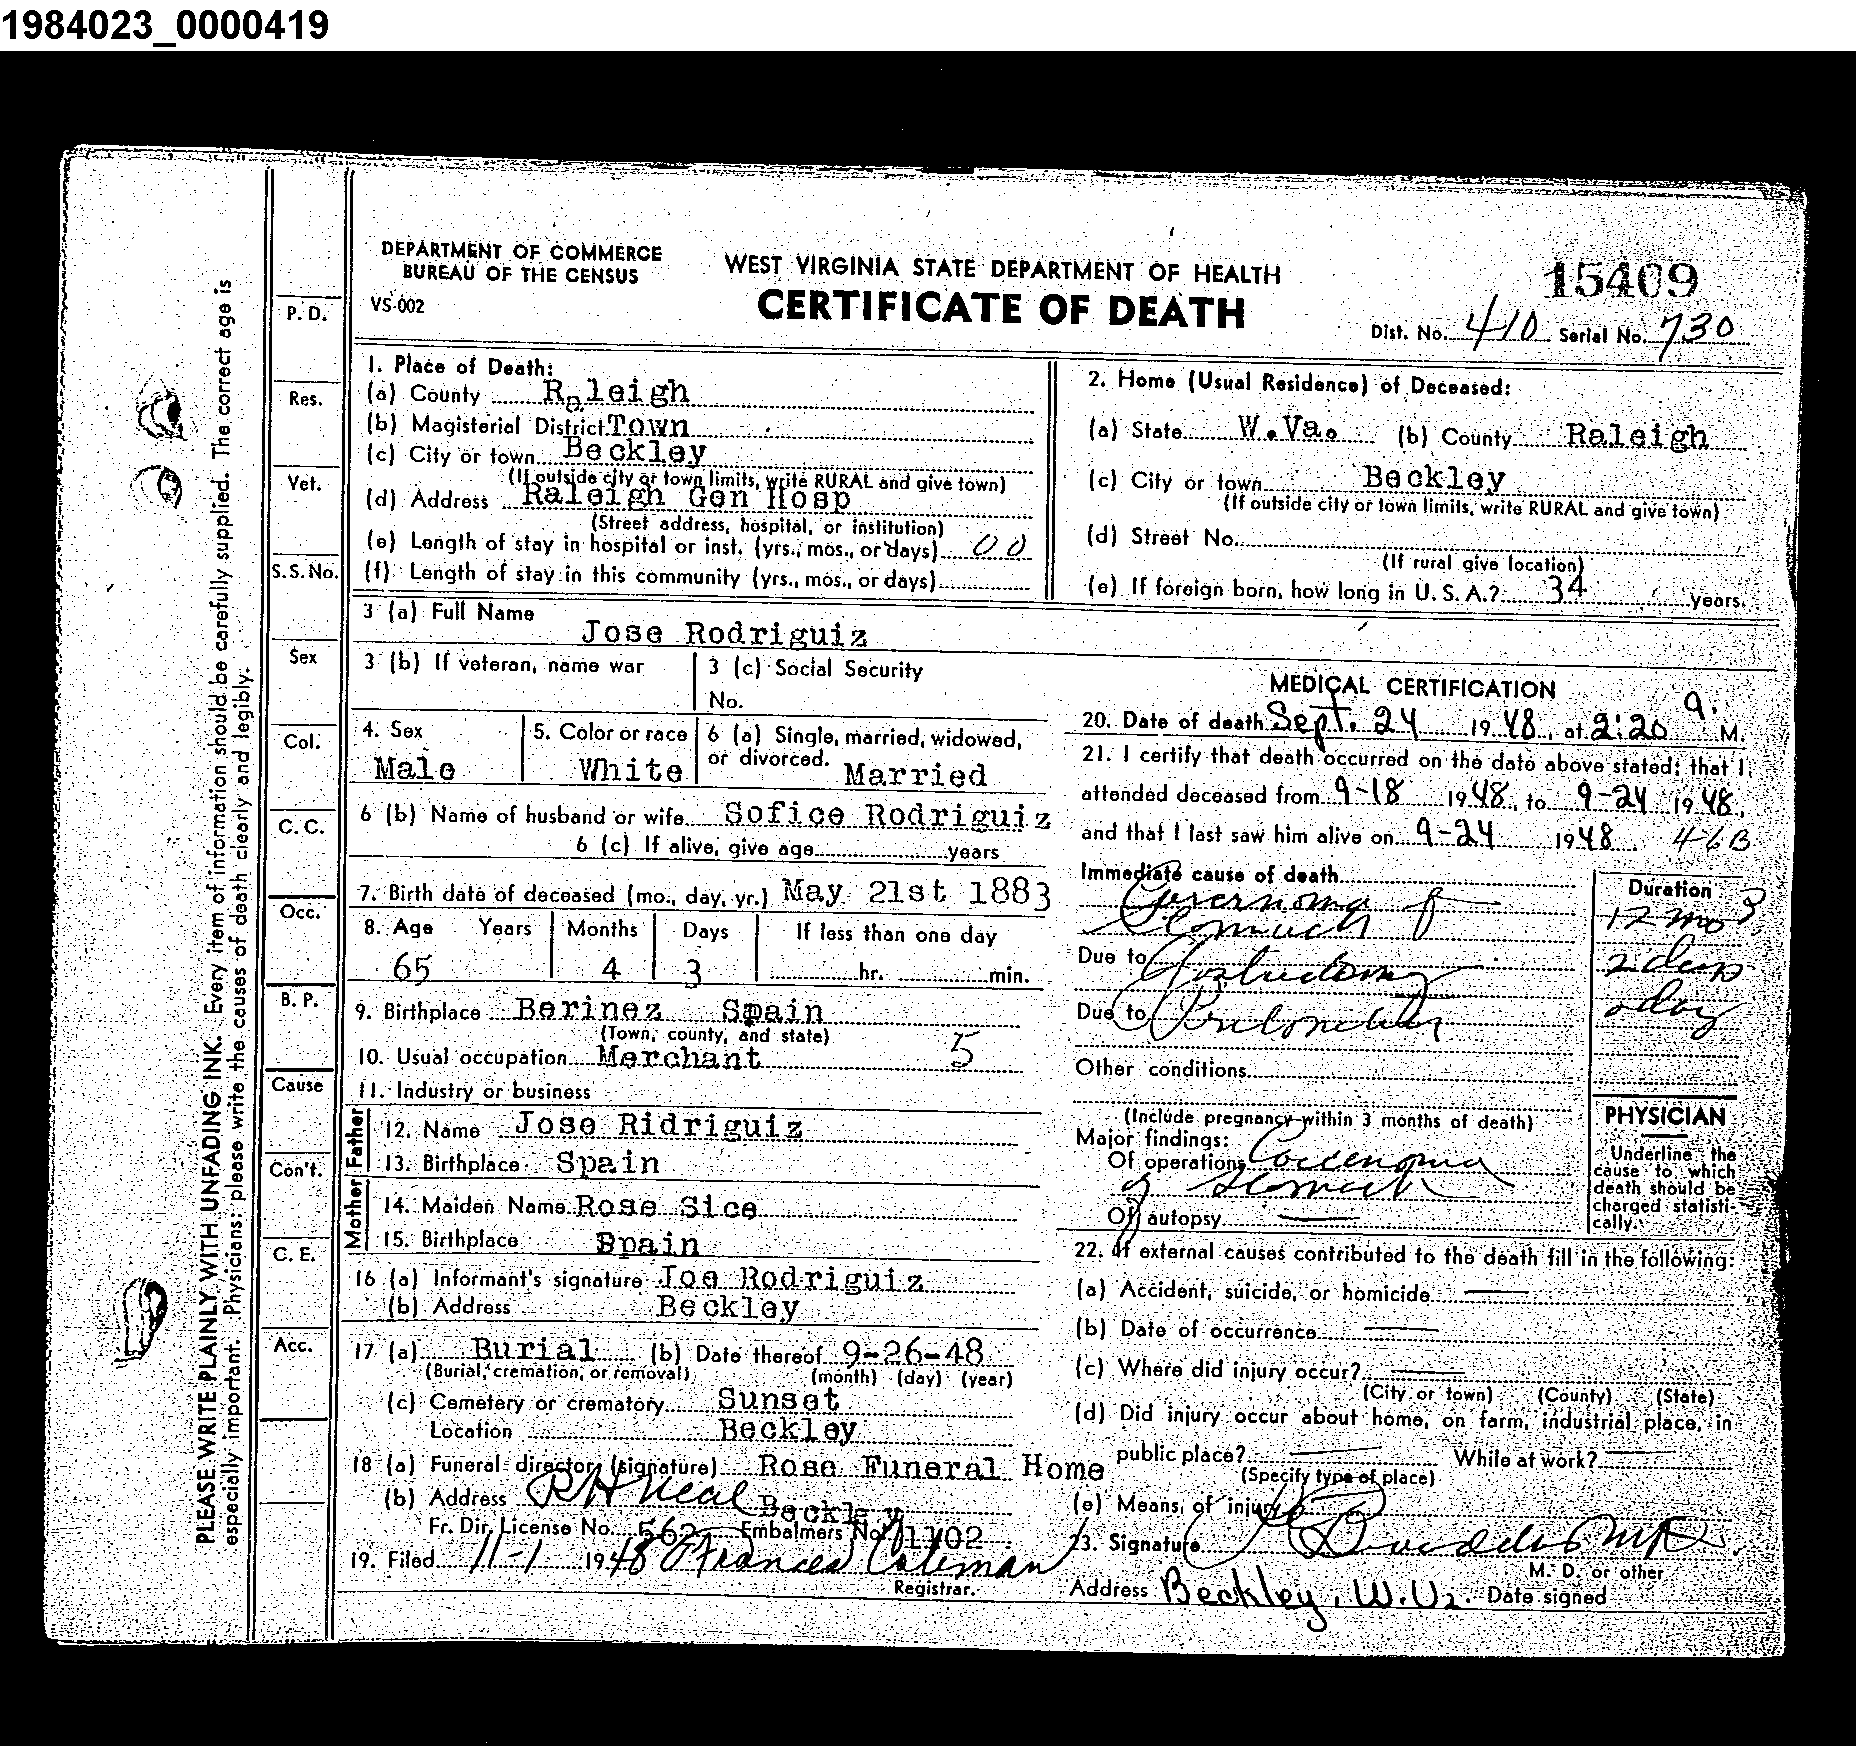 1984023_0000419
DEPARTMENT OF COMMERCE
BUREAU OF THE CENSUS
VS-002
WEST VIRGINIA STATE DEPARTMENT OF HEALTH
CERTIFICATE OF DEATH
15409
Dist. No. 410 Serial No. 730
PLEASE WRITE PLAINLY WITH UNFADING INK. Every item of information should be carefully supplied. The correct age is
especially important. Physicians: please write the causes of death clearly and legibly.
P. D.
Res.
Vet.
S.S. No.
Sex
Col.
C. C.
Occ.
B. P.
Cause
Con't.
C. E.
Acc.
1. Place of Death:
(a) County Raleigh
(b) Magisterial District Town
(c) City or town Beckley
(If outside city or town limits, write RURAL and give town)
(d) Address Raleigh Gen Hosp
(Street address, hospital, or institution)
(e) Length of stay in hospital or inst. (yrs., mos., or days) 00
(f) Length of stay in this community (yrs., mos., or days)
2. Home (Usual Residence) of Deceased:
(a) State W.Va. (b) County Raleigh
(c) City or town Beckley
(If outside city or town limits, write RURAL and give town)
(d) Street No.
(If rural give location)
(e) If foreign born, how long in U. S. A.? 34 years.
3 (a) Full Name Jose Rodriguiz
3 (b) If veteran, name war
3 (c) Social Security
No.
4. Sex Male
5. Color or race White
6 (a) Single, married, widowed,
or divorced. Married
6 (b) Name of husband or wife Sofice Rodriguiz
6 (c) If alive, give age years
7. Birth date of deceased (mo., day, yr.) May 21st 1883
8. Age Years Months Days If less than one day
65 4 3 hr. min.
9. Birthplace Berinez Spain
(Town, county, and state)
10. Usual occupation Merchant 5
11. Industry or business
Father
12. Name Jose Ridriguiz
13. Birthplace Spain
Mother
14. Maiden Name Rose Sice
15. Birthplace Spain
16 (a) Informant's signature Joe Rodriguiz
(b) Address Beckley
17 (a) Burial (b) Date thereof 9-26-48
(Burial, cremation, or removal) (month) (day) (year)
(c) Cemetery or crematory Sunset
Location Beckley
18 (a) Funeral director (signature) Rose Funeral Home
(b) Address R H Neal Beckley
Fr. Dir. License No. 562 Embalmers No. 1102
19. Filed 11-1 1948 Frances Coleman
Registrar.
MEDICAL CERTIFICATION
20. Date of death Sept. 24 1948, at 2:20 a. M.
21. I certify that death occurred on the date above stated; that I
attended deceased from 9-18 1948, to 9-24 1948,
and that I last saw him alive on 9-24 1948 46B
Immediate cause of death
Carcenoma of
Stomach
Duration
12 mo
Due to
2 days
Due to
Other conditions
(Include pregnancy within 3 months of death)
Major findings:
Of operations Carcenoma
of Stomach
Of autopsy
PHYSICIAN
Underline the
cause to which
death should be
charged statisti-
cally.
22. If external causes contributed to the death fill in the following:
(a) Accident, suicide, or homicide
(b) Date of occurrence
(c) Where did injury occur?
(City or town) (County) (State)
(d) Did injury occur about home, on farm, industrial place, in
public place? While at work?
(Specify type of place)
(e) Means of injury
23. Signature
M. D. or other
Address Beckley, W.Va. Date signed